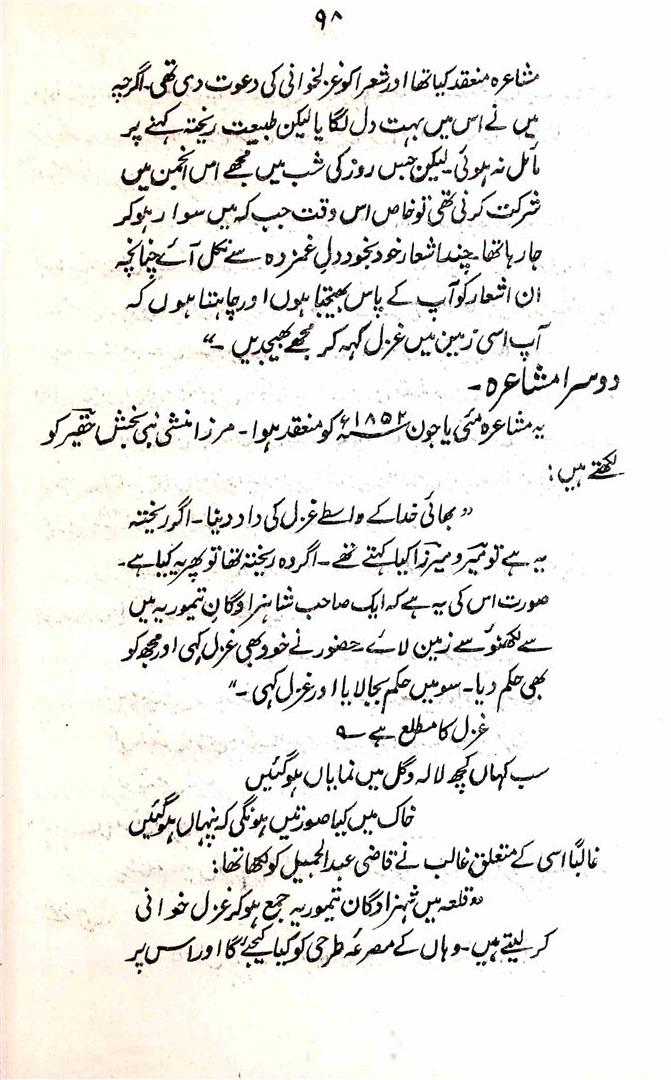 ۹۸
مشاعرہ منعقد کیا تھا اور شعرا کو غزلخوانی کی دعوت دی تھی۔ اگرچہ
میں نے اس میں بہت دل لگایا لیکن طبیعت ریختہ کہنے پر
مائل نہ ہوئی۔ لیکن جس روز کی شب میں مجھے اس انجمن میں
شرکت کرنی تھی تو خاص اس وقت جب کہ میں سوار ہو کر
جا رہا تھا۔ چند اشعار خود بخود دلِ غمزدہ سے نکل آئے چنانچہ
ان اشعار کو آپ کے پاس بھیجتا ہوں اور چاہتا ہوں کہ
آپ اسی زمین میں غزل کہہ کر مجھے بھیجدیں ۔"
دوسرا مشاعرہ ۔
یہ مشاعرہ مئی یا جون ۱۸۵۲ء کو منعقد ہوا ۔ مرزا منشی نبی بخش حقیر کو
لکھتے ہیں :
"بھائی خدا کے واسطے غزل کی داد دینا ۔ اگر ریختہ
یہ ہے تو میر و میرزا کیا کہتے تھے ۔ اگر وہ ریختہ تھا تو پھر یہ کیا ہے۔
صورت اس کی یہ ہے کہ ایک صاحب شاہزادگانِ تیموریہ میں
سے لکھنؤ سے زمین لائے۔ حضور نے خود بھی غزل کہی اور مجھ کو
بھی حکم دیا ۔ سو میں حکم بجا لایا اور غزل کہی ۔"
غزل کا مطلع ہے ؎
سب کہاں کچھ لالہ و گل میں نمایاں ہو گئیں
خاک میں کیا صورتیں ہونگی کہ پنہاں ہو گئیں
غالباً اسی کے متعلق غالب نے قاضی عبدالجمیل کو لکھا تھا :
"قلعہ میں شہزادگان تیموریہ جمع ہو کر غزل خوانی
کر لیتے ہیں ۔ وہاں کے مصرعۂ طرحی کو کیا کیجئے گا اور اس پر